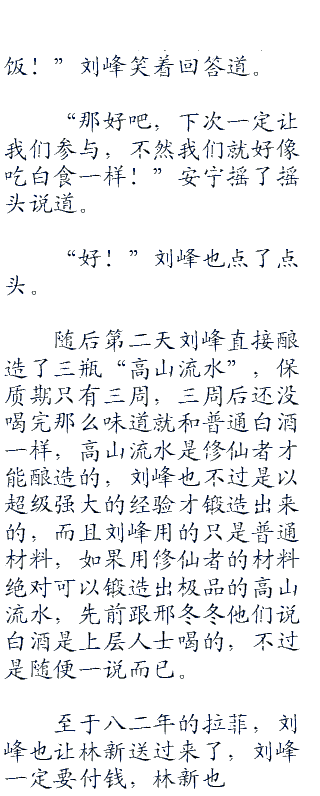 饭！”刘峰笑着回答道。
“那好吧，下次一定让
我们参与，不然我们就好像
吃白食一样！”安宁摇了摇
头说道。
“好！”刘峰也点了点
头。
随后第二天刘峰直接酿
造了三瓶“高山流水”，保
质期只有三周，三周后还没
喝完那么味道就和普通白酒
一样，高山流水是修仙者才
能酿造的，刘峰也不过是以
超级强大的经验才锻造出来
的，而且刘峰用的只是普通
材料，如果用修仙者的材料
绝对可以锻造出极品的高山
流水，先前跟邢冬冬他们说
白酒是上层人士喝的，不过
是随便一说而已。
至于八二年的拉菲，刘
峰也让林新送过来了，刘峰
一定要付钱，林新也